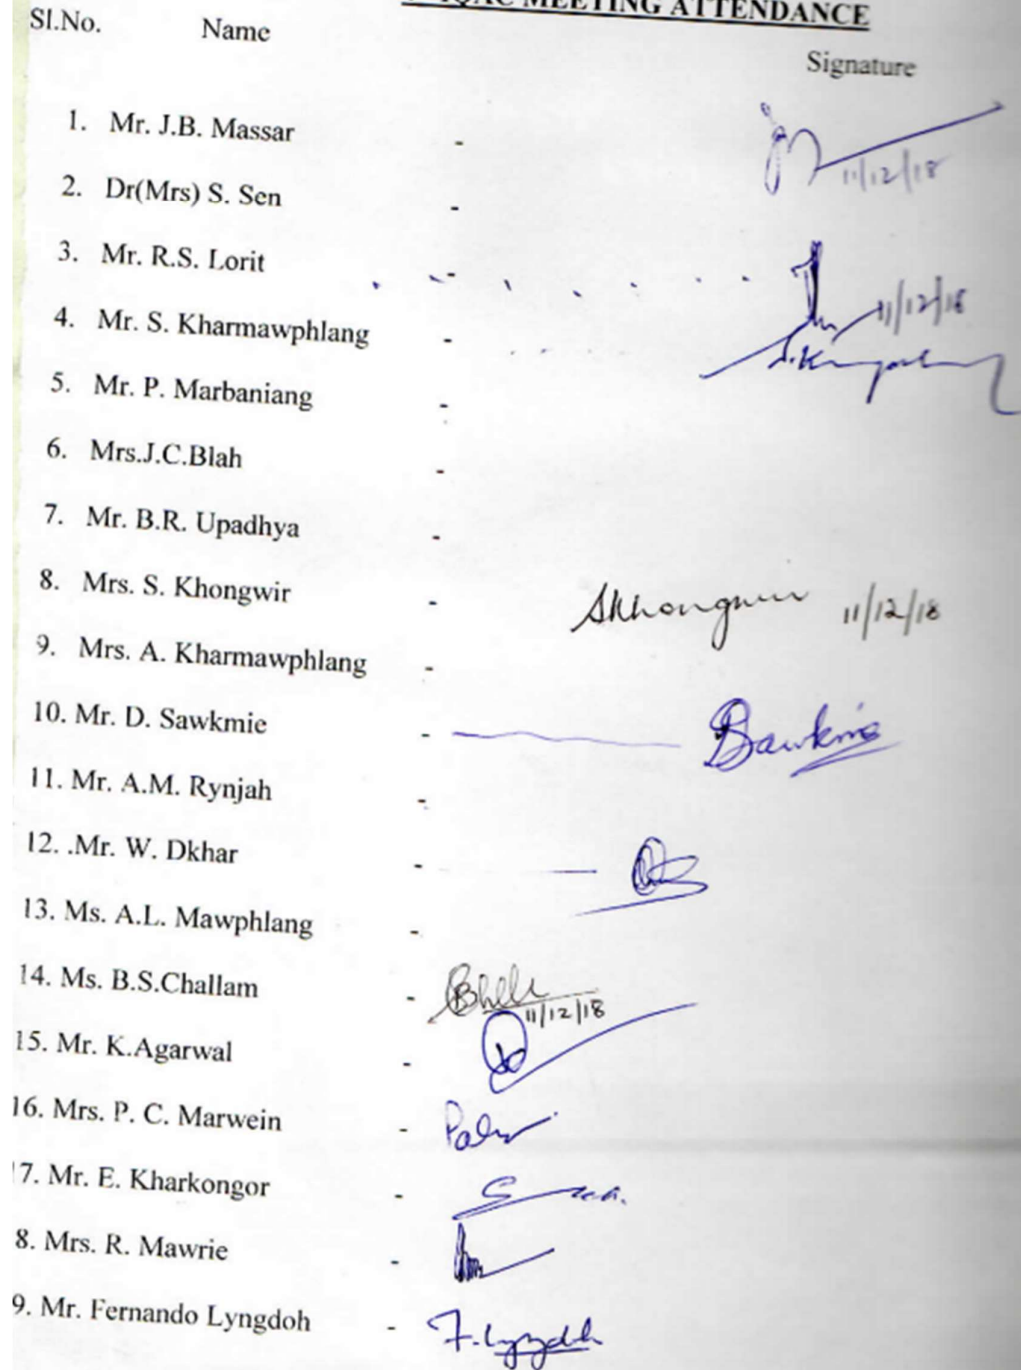 IQAC MEETING ATTENDANCE
Sl.No. Name Signature
1. Mr. J.B. Massar - 11/12/18
2. Dr(Mrs) S. Sen -
3. Mr. R.S. Lorit - 11/12/18
4. Mr. S. Kharmawphlang -
5. Mr. P. Marbaniang -
6. Mrs.J.C.Blah -
7. Mr. B.R. Upadhya -
8. Mrs. S. Khongwir - SKhongwir 11/12/18
9. Mrs. A. Kharmawphlang -
10. Mr. D. Sawkmie - Sawkmie
11. Mr. A.M. Rynjah -
12. .Mr. W. Dkhar -
13. Ms. A.L. Mawphlang -
14. Ms. B.S.Challam - 11/12/18
15. Mr. K.Agarwal -
16. Mrs. P. C. Marwein -
17. Mr. E. Kharkongor -
8. Mrs. R. Mawrie -
9. Mr. Fernando Lyngdoh - F. Lyngdoh